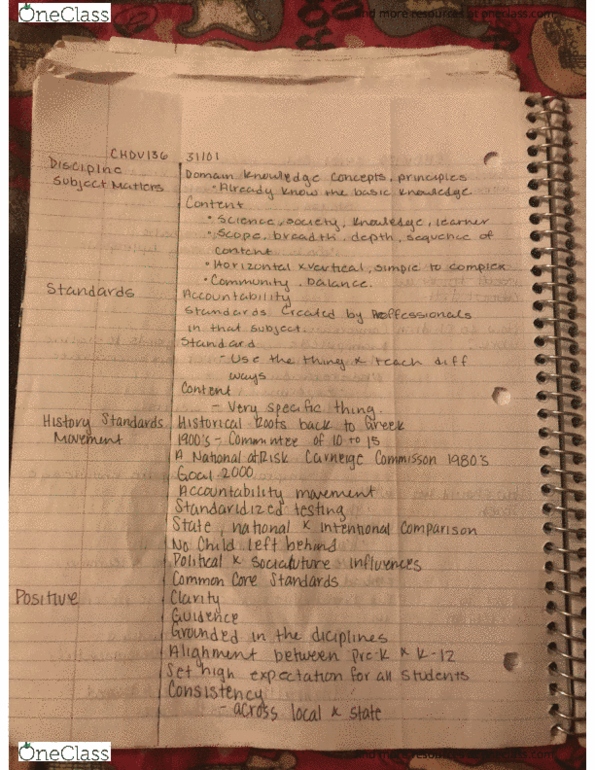 OneClass
find more resources at oneclass.com
CHDV136 31101
Discipline Domain knowledge concepts, principles
Subject Matters • Already know the basic knowledge
Content
• Science, society, knowledge, learner
• Scope, breadth, depth, sequence of
content
• Horizontal x vertical, simple to complex
• Community, balance.
Standards Accountability
Standards created by Proffessionals
in that subject.
Standard
- Use the thing x teach diff
ways
Content
- Very specific thing.
History Standards Historical Roots back to Greek
Movement 1900's - Committee of 10 to 15
A National at Risk Carneige Commisson 1980's
Goal 2000
Accountability movement
Standardized testing
State, national x intentional Comparison
No Child left behind
Political x influences
Common Core Standards
Positive Clarity
Guidence
Grounded in the diciplines
Alignment between Pre-K x K-12
Set high expectation for all students
Consistency
- across local x state
OneClass
find more resources at oneclass.com